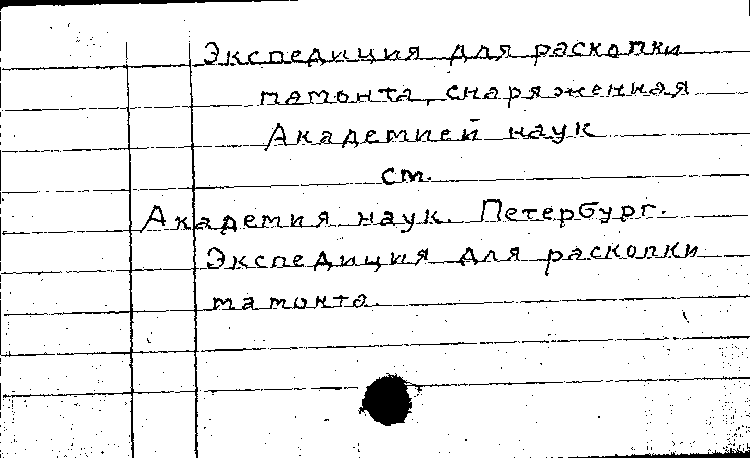 Экспедиция для раскопки
мамонта, снаряженная
Академией наук
см.
Академия наук. Петербург.
Экспедиция для раскопки
мамонта.